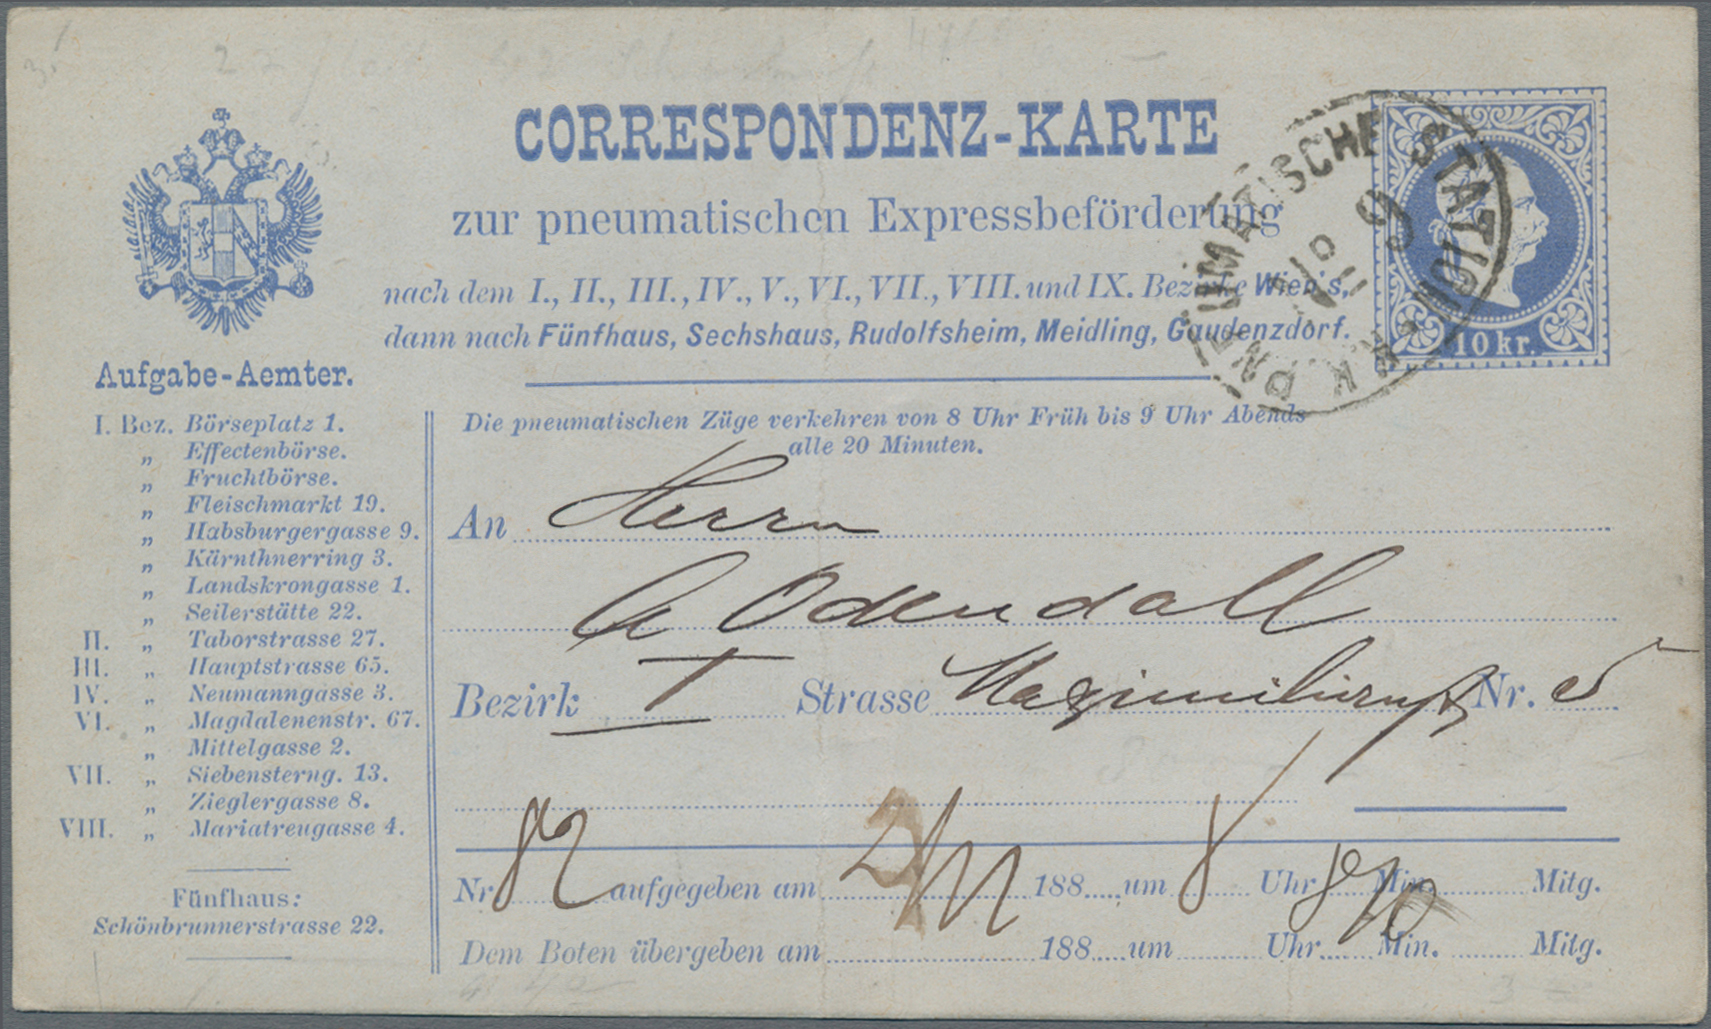 CORRESPONDENZ-KARTE
zur pneumatischen Expressbeförderung
nach dem I., II., III., IV., V., VI., VII., VIII. und IX. Bezirke Wien's,
dann nach Fünfhaus, Sechshaus, Rudolfsheim, Meidling, Gaudenzdorf.
10 kr.
PNEUMATISCHE STATION
K. K.
9
Aufgabe-Aemter.
I. Bez. Börseplatz 1.
„ Effectenbörse.
„ Fruchtbörse.
„ Fleischmarkt 19.
„ Habsburgergasse 9.
„ Kärnthnerring 3.
„ Landskrongasse 1.
„ Seilerstätte 22.
II. „ Taborstrasse 27.
III. „ Hauptstrasse 65.
IV. „ Neumanngasse 3.
VI. „ Magdalenenstr. 67.
„ Mittelgasse 2.
VII. „ Siebensterng. 13.
„ Zieglergasse 8.
VIII. „ Mariatreugasse 4.
Fünfhaus:
Schönbrunnerstrasse 22.
Die pneumatischen Züge verkehren von 8 Uhr Früh bis 9 Uhr Abends
alle 20 Minuten.
An Herrn
A Odendall
Bezirk I Strasse Nr.
Nr. aufgegeben am 188 um 8 Uhr Min. Mitg.
Dem Boten übergeben am 188 um Uhr Min. Mitg.